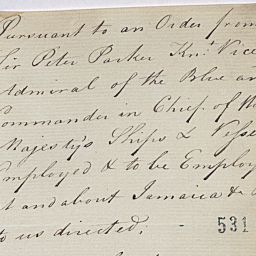 Pursuant to an Order from
Sir Peter Parker Knt. Vice
Admiral of the Blue an
Commander in Chief of th
Majesty's Ships & Vesse
Employed & to be Employ
at and about Jamaica &
to us directed; - 531